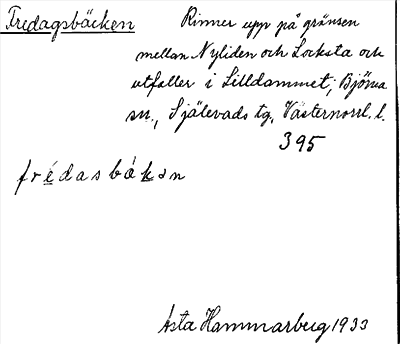 Fredagsbäcken Rinner upp på gränsen
mellan Nyliden och Locksta och
utfaller i Lilldammet, Björna
sn., Själevads tg, Västernorrl. l.
395
frédasbákan
Ásta Hammarberg 1933